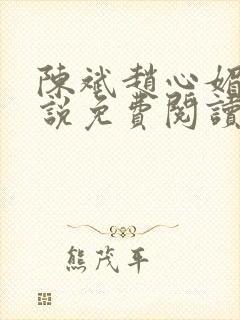 陳斌趙心媚
說免費閱讀
熊茂平